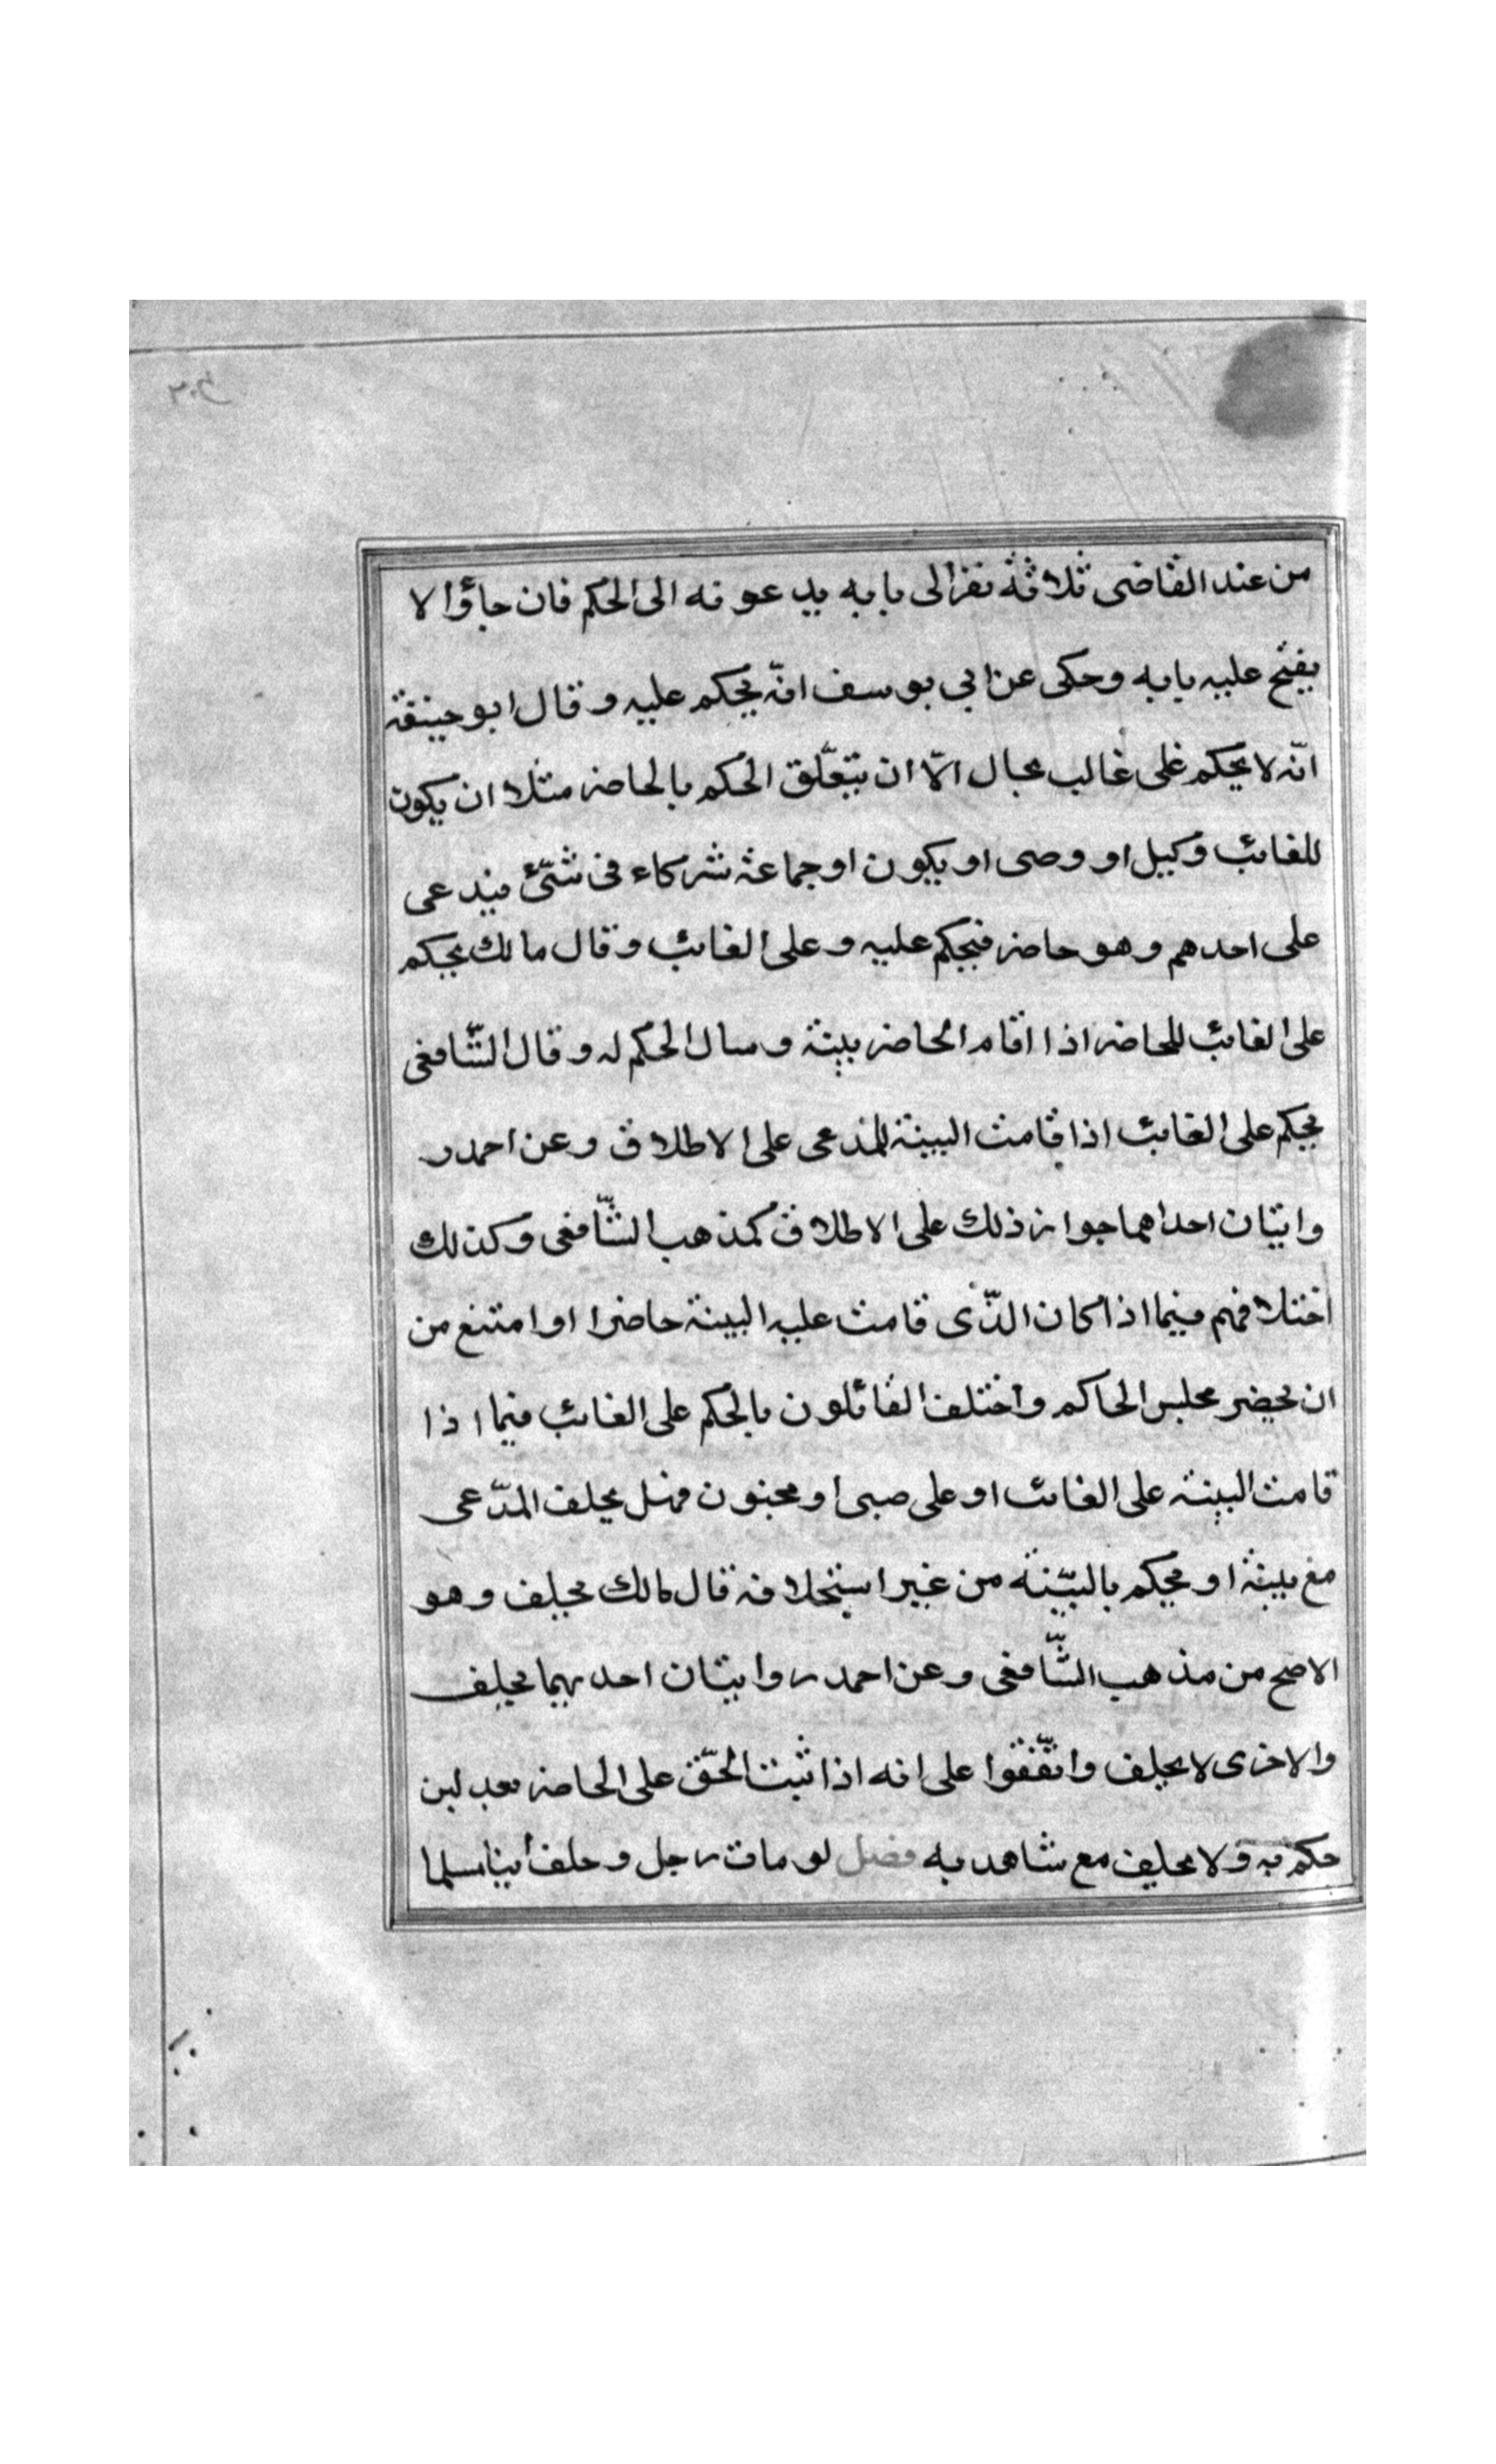 من عند القاضى ثلاثة نفر الى بابه يدعونه الى الحكم فان جاؤا لا
يفتح عليه بابه وحكى عن ابي يوسف انّه يحكم عليه وقال ابو حنيفة
انّه لا يحكم على غالب بحال الّا ان يتعّلق الحكم بالحاضر مثلا ان يكون
للغائب وكيل او وصى او يكون او جماعة شركاء فى شئ فيدعى
على احدهم وهو حاضر فيحكم عليه وعلى الغائب وقال مالك يحكم
على الغائب للحاضر اذا اقام الحاضر بينة وسال الحكم له وقال الشّافعى
يحكم على الغائب اذا قامت البينة للمدعى على الاطلاق وعن احمد ر
وايتان احداهما جواز ذلك على الاطلاق كمذهب الشّافعى وكذلك
اختلافهم فيما اذا كان الذّى قامت عليه البينة حاضرا او امتنع من
ان يحضر مجلس الحاكم واختلف القائلون بالحكم على الغائب فيما اذا
قامت البينة على الغائب او على صبى او مجنون فهل يحلف المدّعى
مع بينة او يحكم بالبيّنة من غير استحلافه قال مالك يحلف وهو
الاصح من مذهب الشّافعى وعن احمد روايتان احديهما يحلف
والاخرى لا يحلف واتّفقوا على انه اذا ثبت الحقّ على الحاضر بعدلين
حكم به ولا يحلف مع شاهديه فصل لو مات رجل وخلف ابنا مسلما